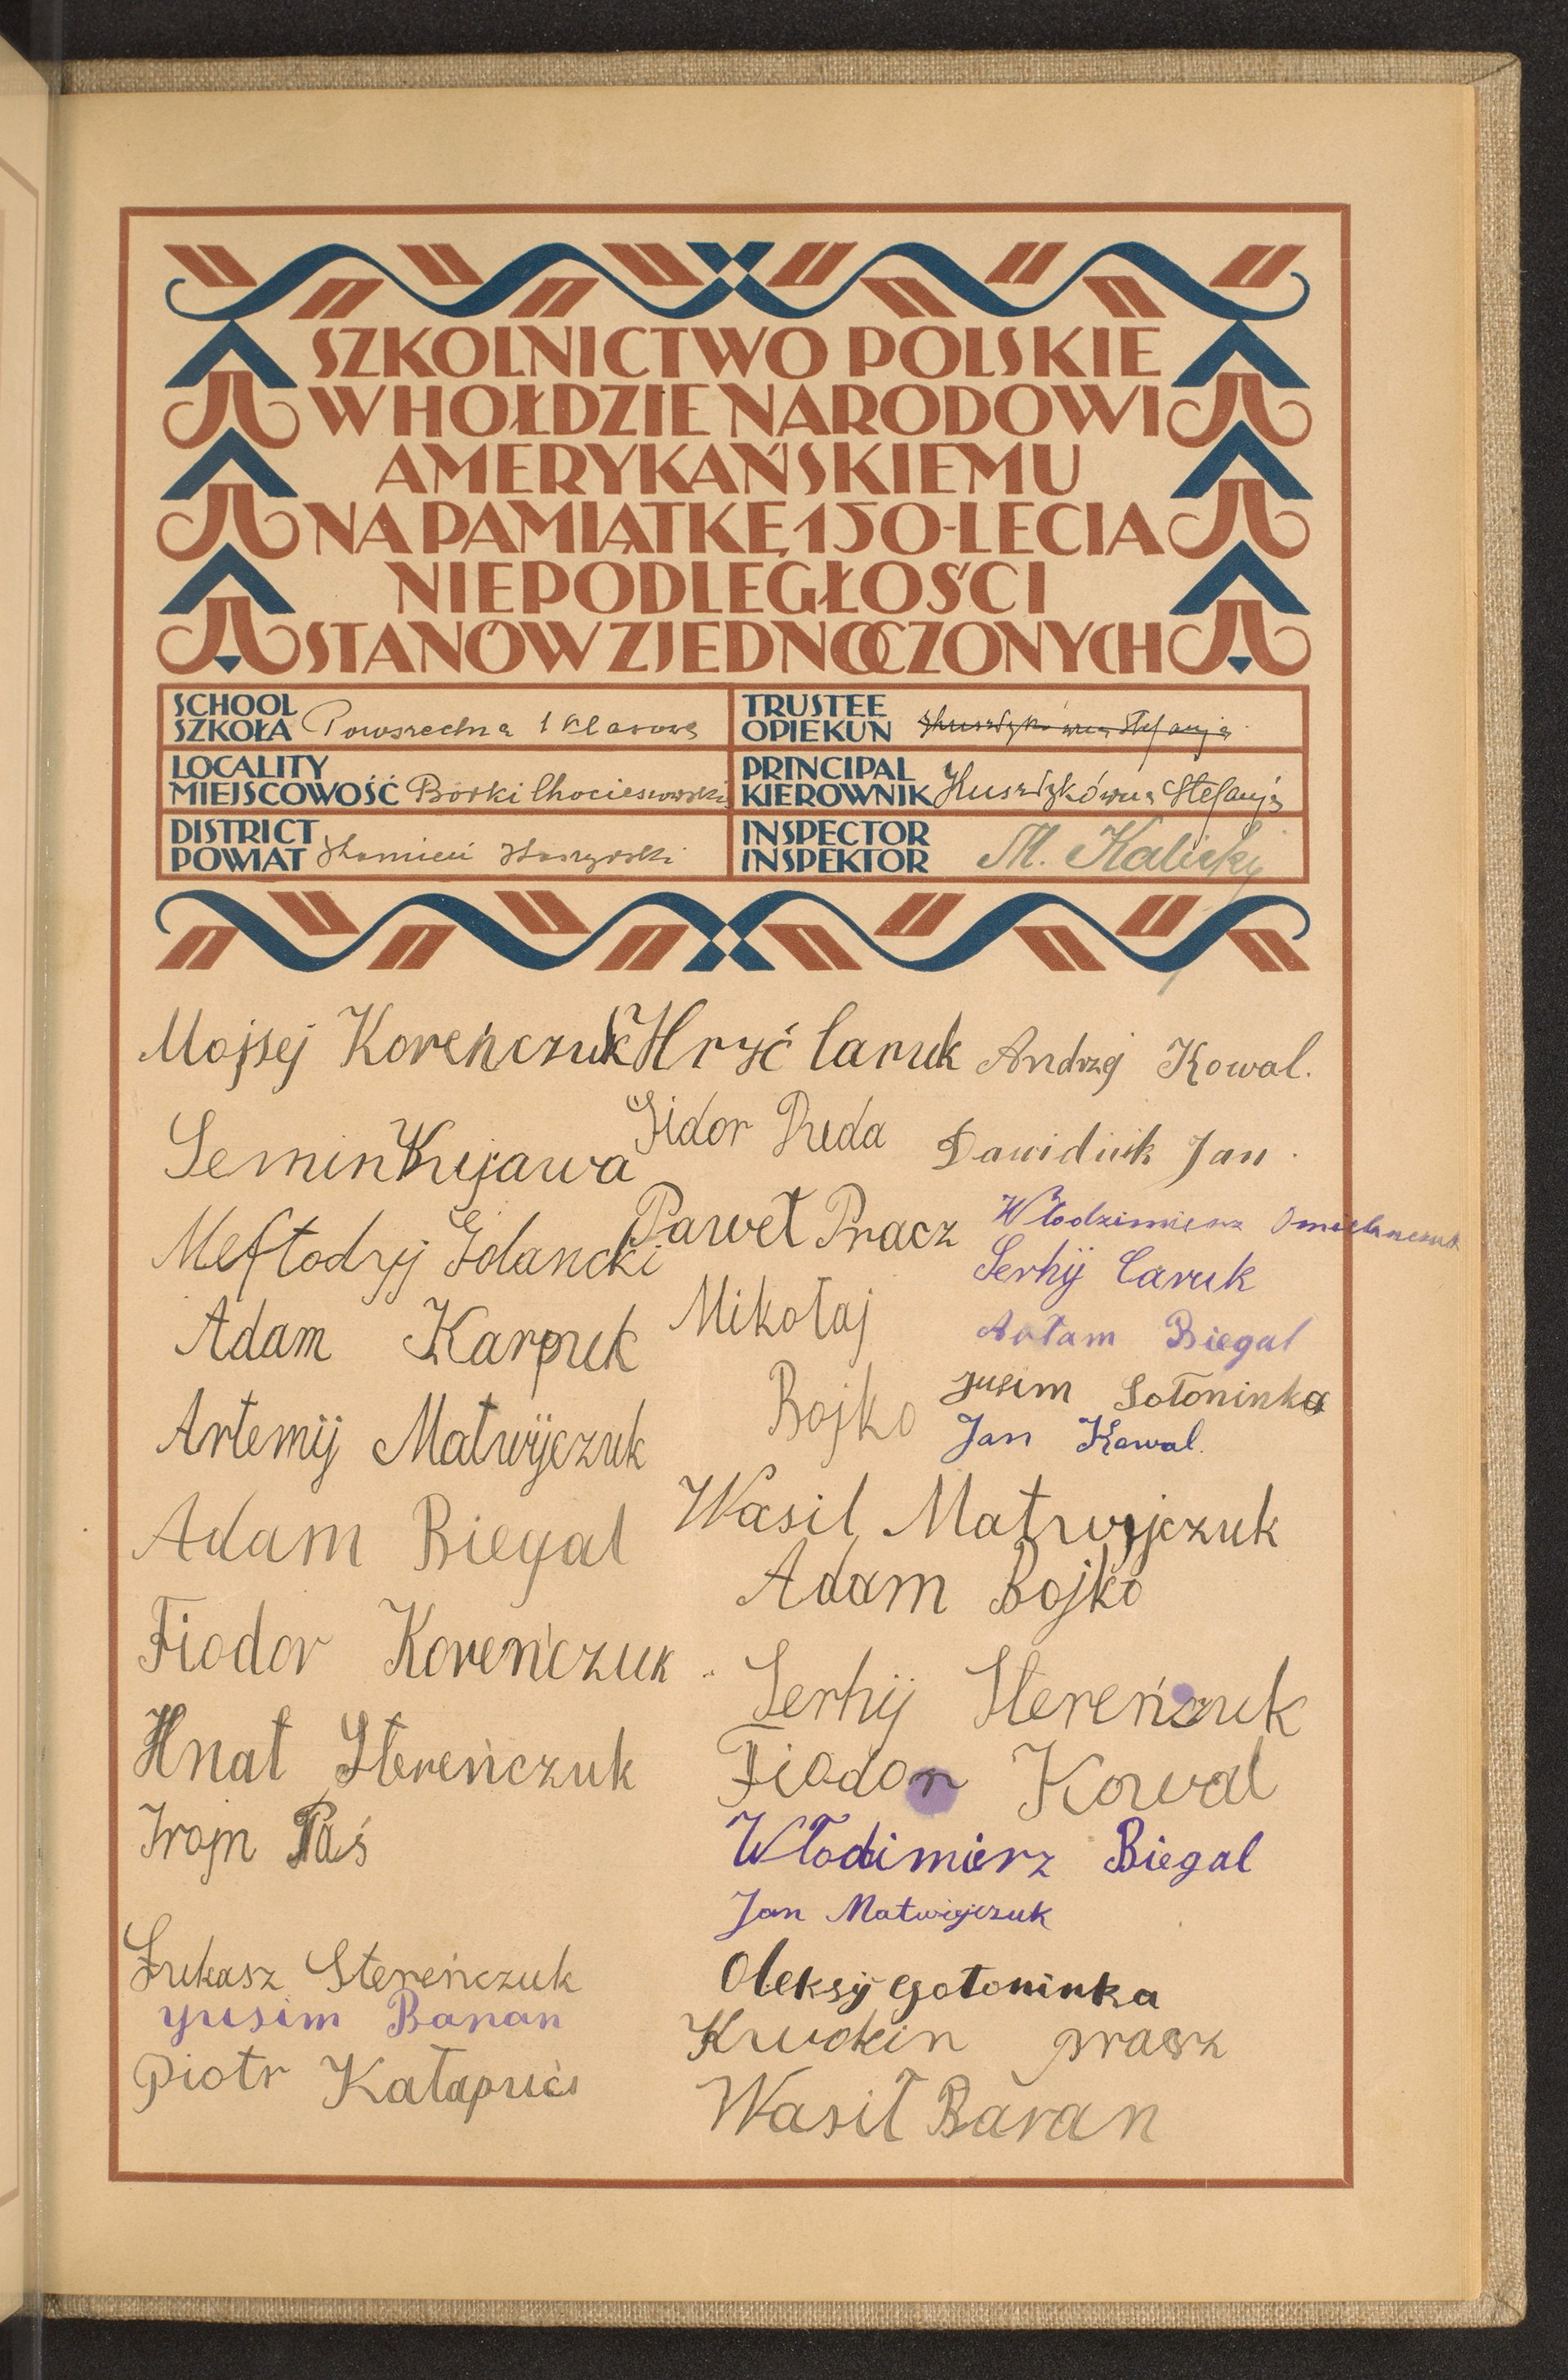 SZKOLNICTWO POLSKIE
W HOŁDZIE NARODOWI
AMERYKAŃSKIEMU
NA PAMIĄTKĘ 150-LECIA
NIEPODLEGŁOŚCI
STANÓW ZJEDNOCZONYCH
SCHOOL
SZKOŁA Powszechna 1 klasowa
TRUSTEE
OPIEKUN
LOCALITY
MIEJSCOWOŚĆ Borki
PRINCIPAL
KIEROWNIK Stefanja
DISTRICT
POWIAT Kamień Koszyrski
INSPECTOR
INSPEKTOR M. Kalicky
Mojsej Koreńczuk
Semin Kujawa
Meftodyj Golancki
Adam Karpuk
Artemij Matwijczuk
Adam Biegal
Fiodor Koreńczuk
Hnat Stereńczuk
Paś
Łukasz Stereńczuk
Yusim Banan
Piotr
Hryć Caruk
Sidor Ruda
Paweł Pracz
Mikołaj
Bojko
Andrzej Kowal.
Dawidiuk Jan.
Włodzimierz
Serhij Caruk
Adam Biegal
Jusim Sołoninka
Jan Kowal.
Wasil Matwyjczuk
Adam Bojko
Serhij
Fiodor Kowal
Włodimierz Biegal
Jan Matwijczuk
Oleksij Sołoninka
Wasił Baran